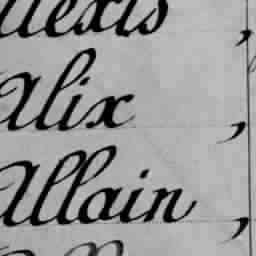 Alexis ,
Alix ,
Allain ,